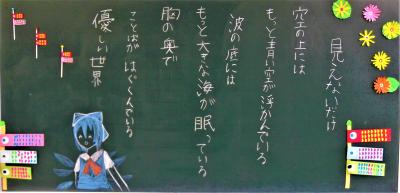 見えないだけ
空の上には
もっと青い空が浮かんでいる
波の底には
もっと大きな海が眠っている
胸の奥で
ことばがはぐくんでいる
優しい世界